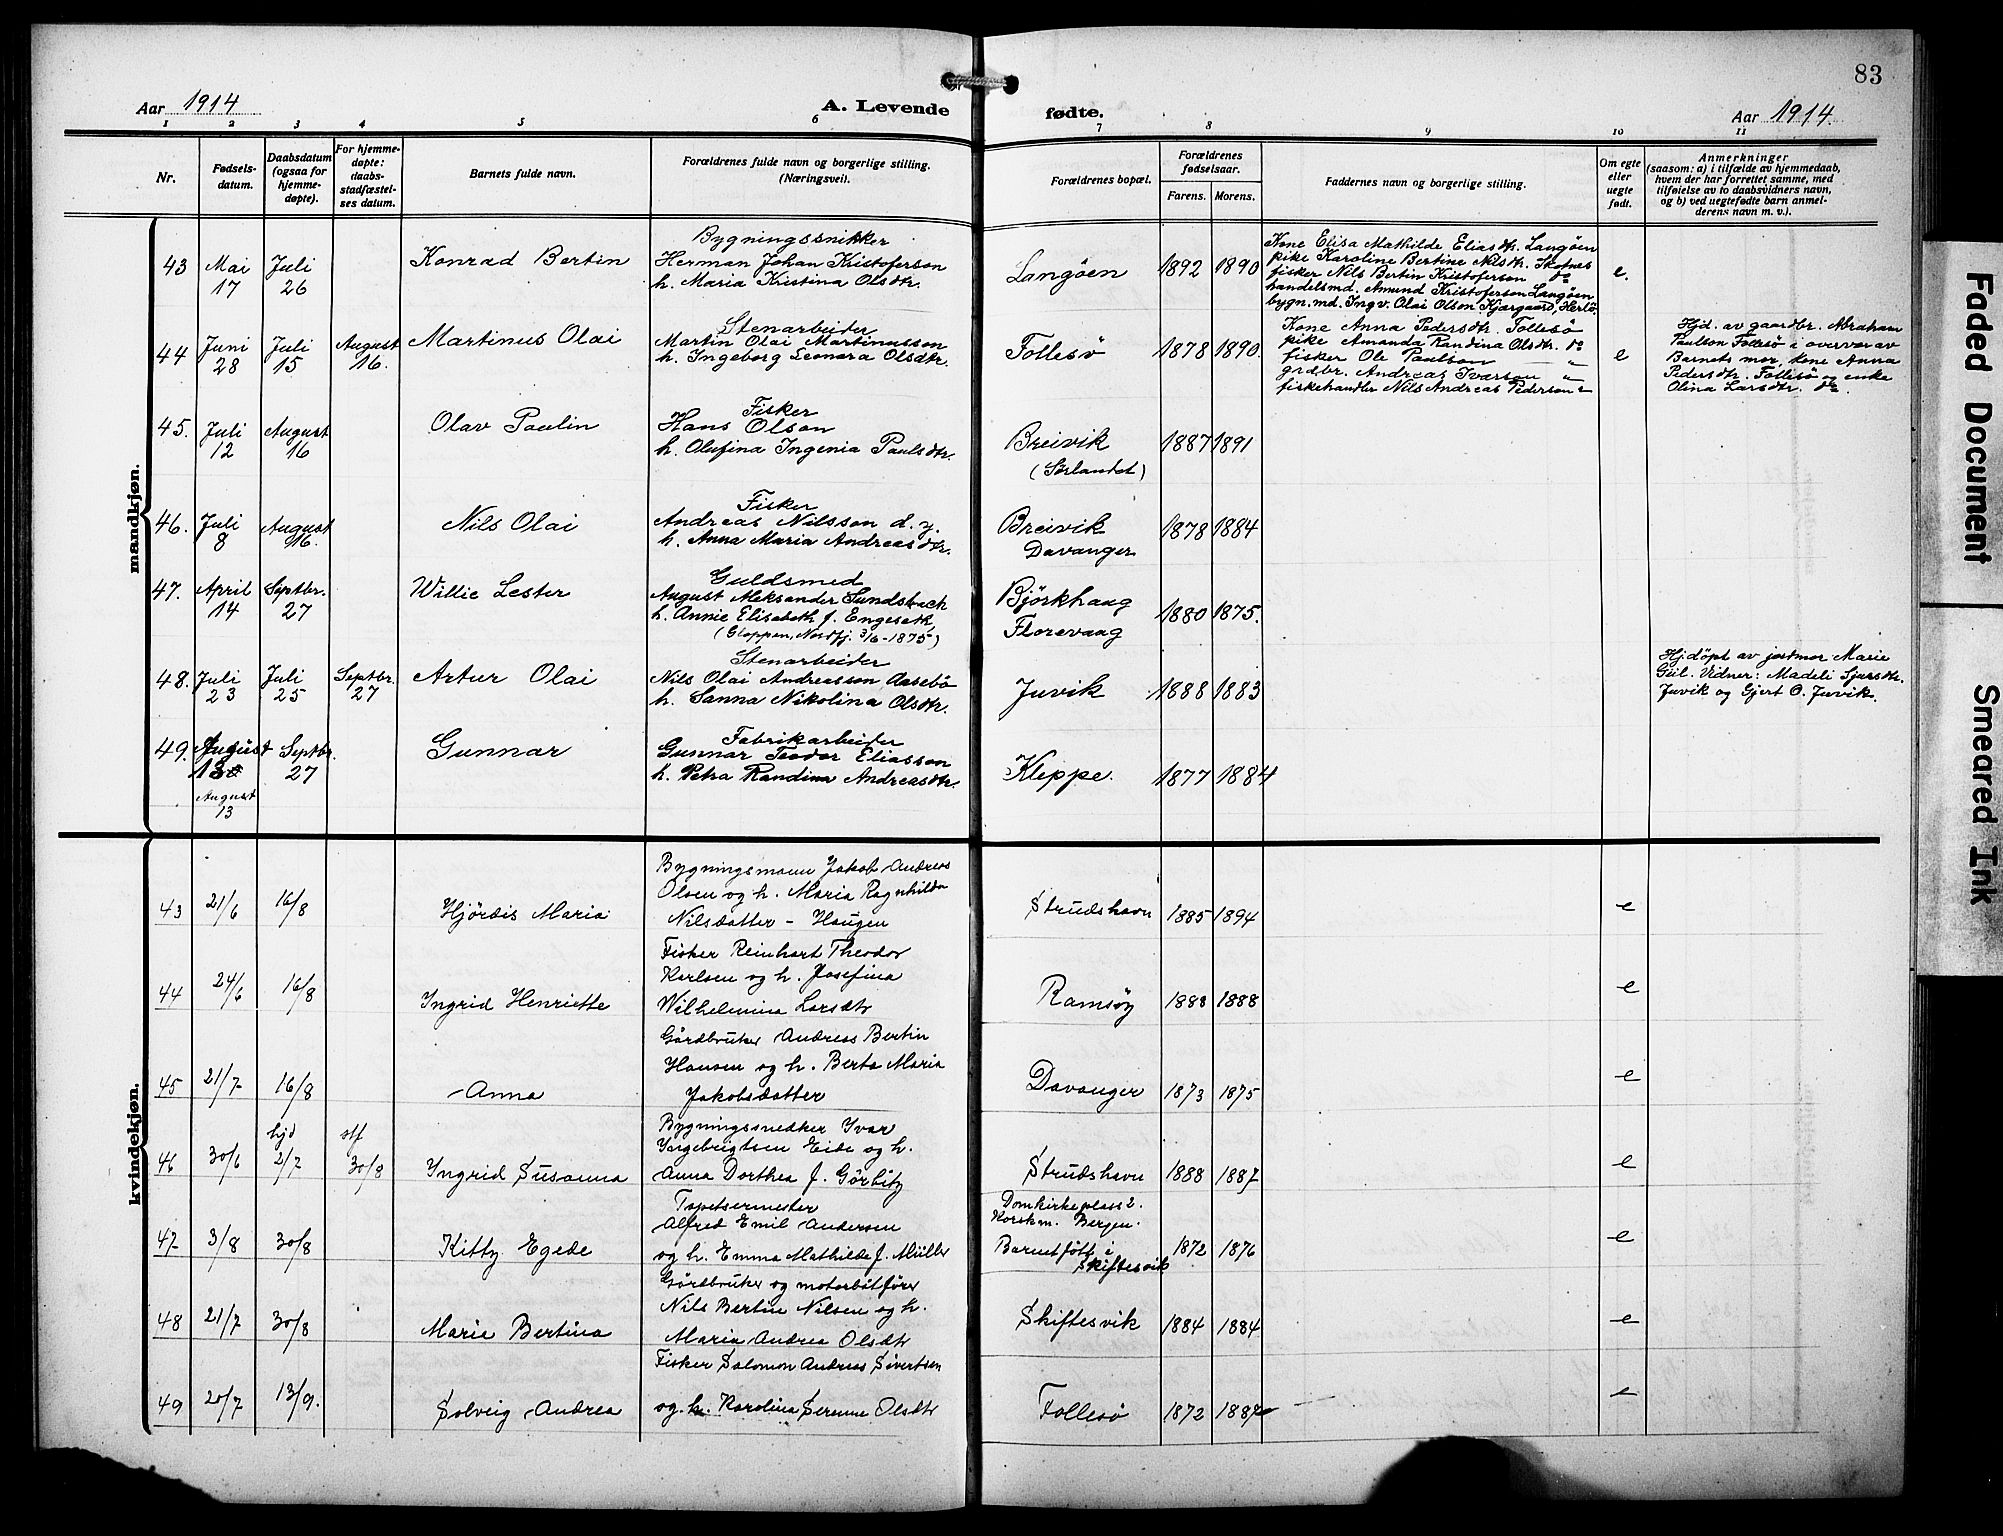 83
Aar 1914
A. Levende
fødte.
Aar 1914.
1 2 3 4 5 6 7 8 9 10 11
Nr.
Fødsels-
datum.
Daabsdatum
(ogsaa for
hjemme-
døpte).
For hjemme-
døpte:
daabs-
stadfæstel-
ses datum.
Barnets fulde navn.
Forældrenes fulde navn og borgerlige stilling.
(Næringsvei).
Forældrenes bopæl.
Forældrenes
fødselsaar.
Farens. Morens.
Faddernes navn og borgerlige stilling.
Om egte
eller
uegte
født.
Anmerkninger
(saasom: a) i tilfælde av hjemmedaab,
hvem der har forrettet samme, med
tilføielse av to daabsvidners navn,
og b) ved uegtefødte barn anmel-
derens navn m. v.).
mandkjøn.
43
Mai
17
Juli
26
Konrad Bertin
Bygningssnikker
Herman Johan Kristoferson
h. Maria Kristina Olsdtr.
Langöen
1892 1890
Kone Elisa Mathilde Eliasdtr. Langöen
pike Karoline Bertine Nilsdtr. Skofnes
fisker Nils Bertin Kristoferson do
handelsmd. Amund Kristoferson Langöen
bygn.md. Ingv. Olai Olson Kjærgaard, Herlö.
e.
44
Juni
28
Juli
15
August
16.
Martinus Olai
Stenarbeider
Martin Olai Martinusson
h. Ingeborg Leonora Olsdtr.
Follesö
1878 1890.
Kone Anna Pedersdtr. Follesö
pike Amanda Randina Olsdtr. do
fisker Ole Paulson "
grdbr. Andreas Ivarson "
fiskehandler Nils Andreas Pederson "
e
Hjd. av gaardbr. Abraham
Paulson Follesö i overvær av
Barnets mor, kone Anna
Pedersdtr. Follesö og enke
Olina Larsdtr. do
45.
Juli
12
August
16
Olav Paulin
Fisker
Hans Olson
h. Olufina Ingenia Paulsdtr.
Breivik
(Sørlandet)
1887 1891
46.
Juli
8
August
16.
Nils Olai
Fisker
Andreas Nilsson d. y.
h. Anna Maria Andreasdtr.
Breivik
Davanger
1878 1884
47.
April
14
Septbr.
27
Willie Lester
Guldsmed
August Aleksander Sundsback
h. Annie Elisabeth f. Engesæth
(Gloppen, Nordfj. 3/6-1875)
Björkhaug
Florevaag
1880 1875.
48.
Juli
23
Juli
25
Septbr.
27
Artur Olai
Stenarbeider
Nils Olai Andreasson Aasebö
h. Sanna Nikolina Olsdtr.
Juvik
1888 1883
Hjdöpt av jordmor Marie
Gul. Vidner: Madeli
Juvik og Gjert O. Juvik.
49.
August
13
Septbr.
27
Gunnar
Fabrikarbeider
Gunnar Teodor Eliasson
h. Petra Randina Andreasdtr.
Kleppe.
1877 1884
August
13
kvindekjøn.
43
21/6
16/8
Hjördis Maria
Bygningsmann Jakob Andreas
Olsen og h. Maria Ragnhilda
Nilsdatter - Haugen
Strudshavn
1885 1894
e
44
24/6
16/8
Ingrid Henriette
Fisker Reinhart Theodor
Karlsen og h. Josefina
Wilhelmina Larsdtr
Ramsöy
1888 1888
e
45
21/7
16/8
Anna
Gårdbruker Andreas Bertin
Hansen og h. Berta Maria
Jakobsdatter
Davanger
1873 1875
e
46
30/6
hjd
2/7
stf
30/8
Ingrid Susanna
Bygningssnedker Ivar
Ingebrigtsen Eide og h.
Anna Dorthea f. Görbitz
Strudshavn
1888 1887
e
47
3/8
30/8
Kitty Egede
Tapetsermester
Alfred Emil Andersen
og h. Emma Mathilde f. Müller
Domkirkeplass 2.
Korskm. Bergen.
Barnet fött i
Skiftesvik
1872 1876
e
48
21/7
30/8
Marie Bertina
Gårdbruker og motorbåtförer
Nils Bertin Nilsen og h.
Maria Andrea Olsdtr
Skiftesvik
1884 1884
e
49
20/7
13/9.
Solveig Andrea
Fisker Salomon Andreas Sivertsen
og h. Karolina Serenne Olsdtr
Follesö
1872 1887
e
Faded Document
Smeared Ink